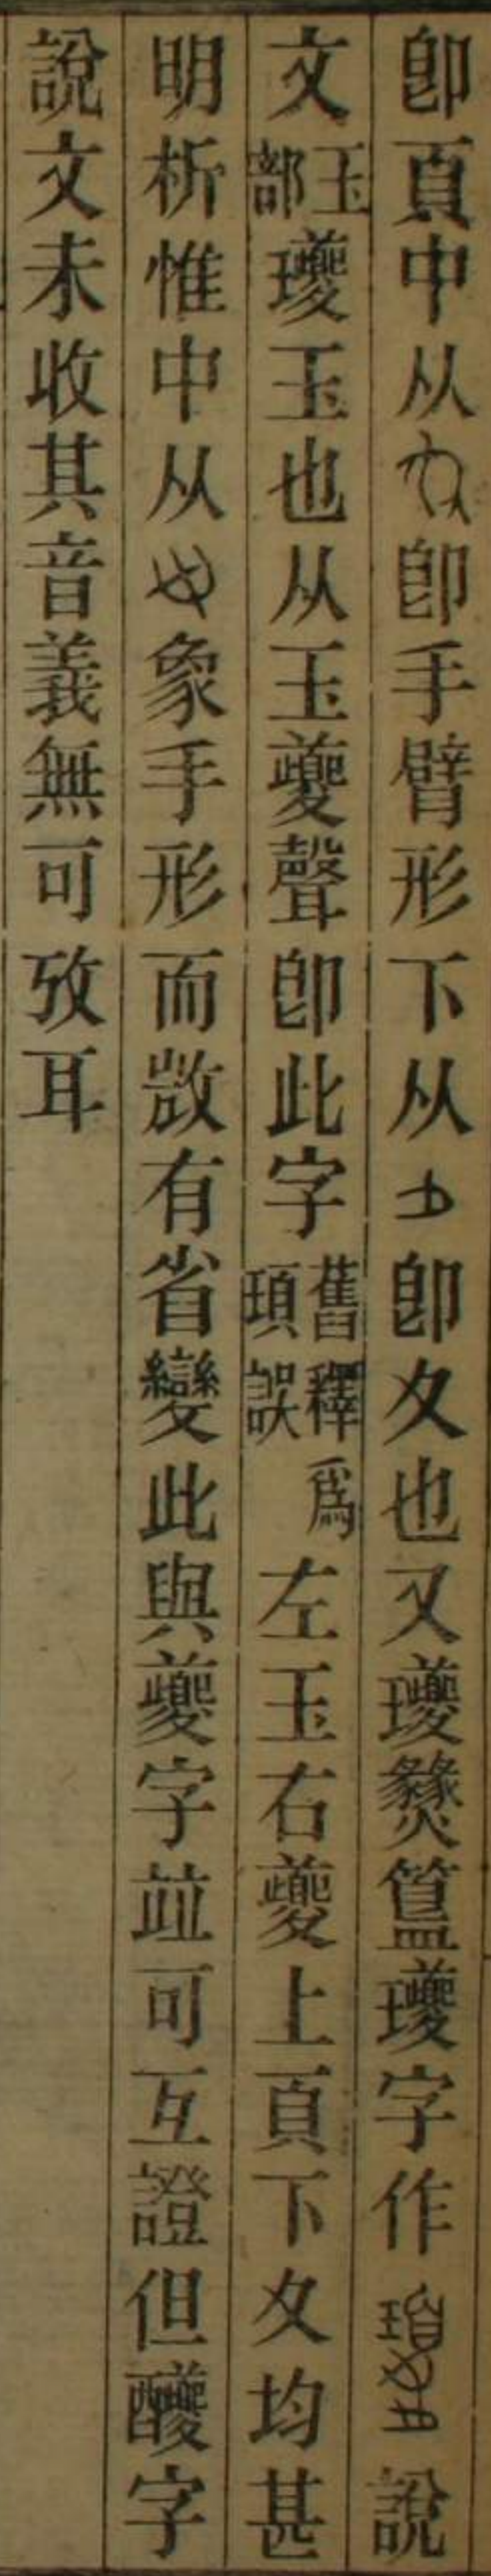 卽頁中从卽手臂形下从卽夊也又瓊燹簋瓊字作說
文玉部瓊玉也从玉夒聲卽此字舊釋爲頊誤左玉右夒上頁下夊均甚
明析惟中从象手形而㪚有省變此與夒字竝可互證但字
說文未收其音義無可攷耳